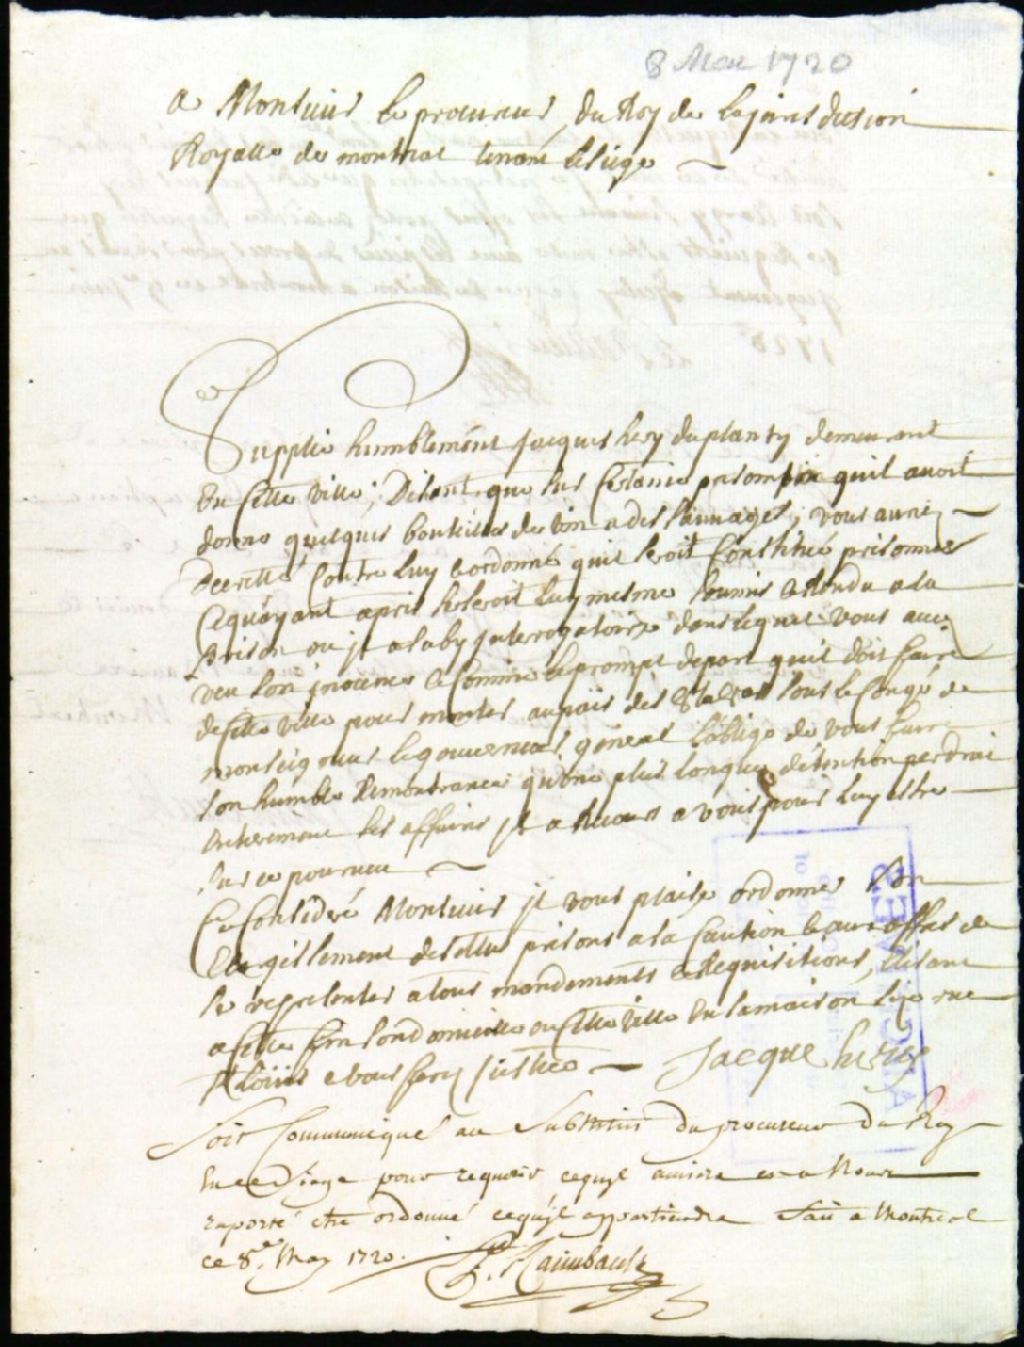 8 Mai 1720
A Monsieur le procureur du Roy de la jurisdiction
Royalle de montreal tenant le siege
Supplie humblement Jacques hery duplanty demeurant
En cette ville, Disant que sur certaine presomption quil avoit
donné quelques bouteilles de vin a des sauvages, vous auriez
decretté contre luy & ordonné quil seroit constitué prisonnier
Ce quayant apris il se seroit luy mesme soumis & rendu a la
prison ou il a suby interrogatoire dans lequel vous avez
veu son inocence & comme le prompt depart quil doit faire
de cette ville pour monter au païs des sous le congé de
monseigneur le gouverneur general loblige de vous faire
son humble Remontrance quune plus longue détention perdrai
entierement ses affaires il a recours a vous pour luy estre
sur ce pourveu
Ce Consideré Monsieur il vous plaise ordonner son
Elargissement desdittes prisons a sa caution & aux offres de
se representer a tous mandements & Requisitions, Elisant
a cette fin son domicille en cette ville En sa maison size rue
St Loüis & vous ferez justice Jacque hery
Soit Communiqué au Substitut du procureur du Roy
En ce Siege pour requerir ce quil avisera & a Nous
raporté etre ordonné ce quil appartiendra fait a Montreal
ce 8e May 1720. Raimbault
ARCHIVES